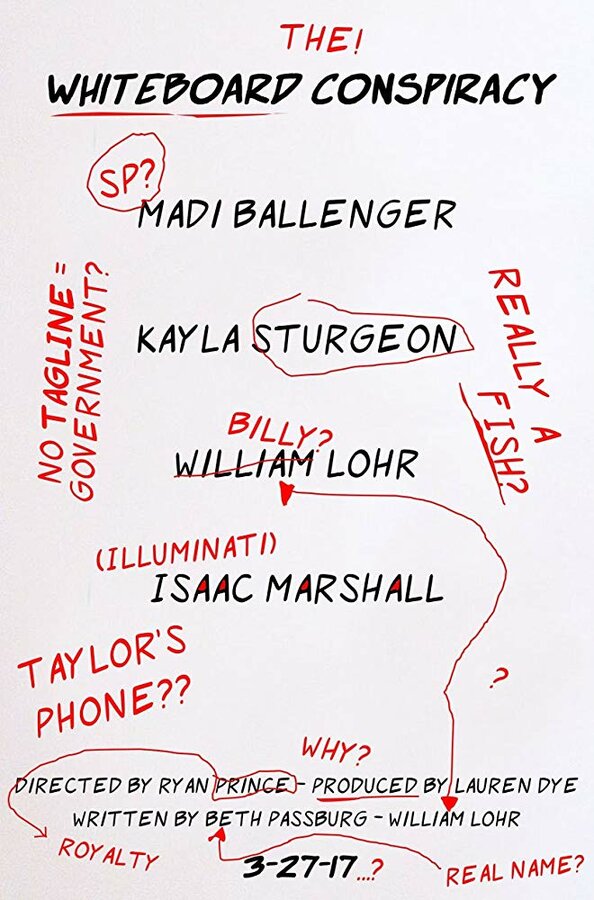 THE!
WHITEBOARD CONSPIRACY
SP?
MADI BALLENGER
NO TAGLINE =
GOVERNMENT?
KAYLA STURGEON
REALLY A
FISH?
BILLY?
WILLIAM LOHR
(ILLUMINATI)
ISAAC MARSHALL
TAYLOR'S
PHONE??
?
WHY?
DIRECTED BY RYAN PRINCE - PRODUCED BY LAUREN DYE
WRITTEN BY BETH PASSBURG - WILLIAM LOHR
ROYALTY
3-27-17...?
REAL NAME?